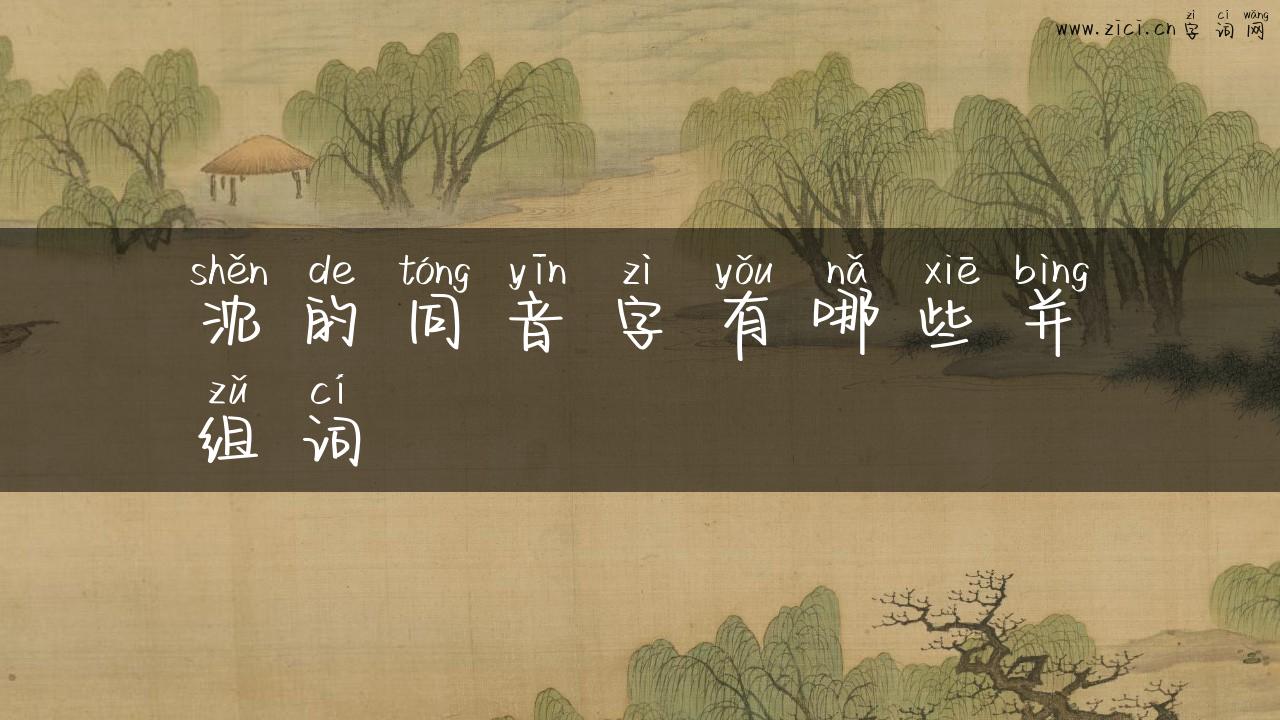 zì cí wǎng
www.zici.cn 字 词 网
shěn de tóng yīn zì yǒu nǎ xiē bìng
沈 的 同 音 字 有 哪 些 并
zǔ cí
组 词